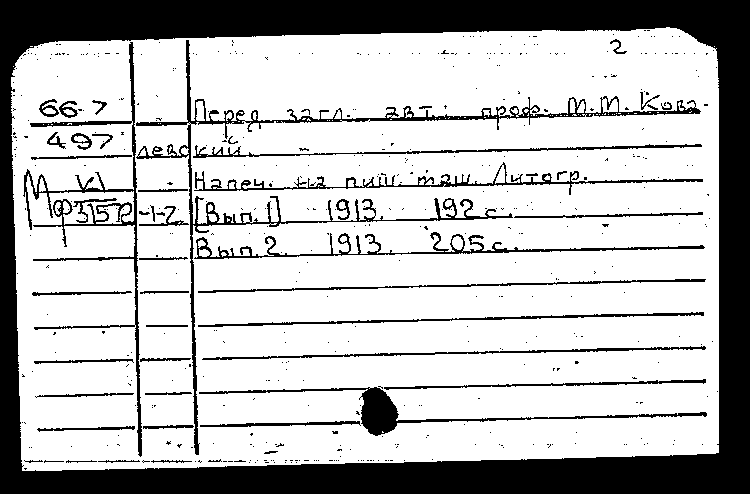 2
66-7 Перед загл. авт.: проф. М.М. Кова-
497 левский.
VI Напеч. на пиш. маш. Литогр.
Мф 315 -1-2 [Вып. 1] 1913. 192 с.
Вып. 2. 1913. 205 с.